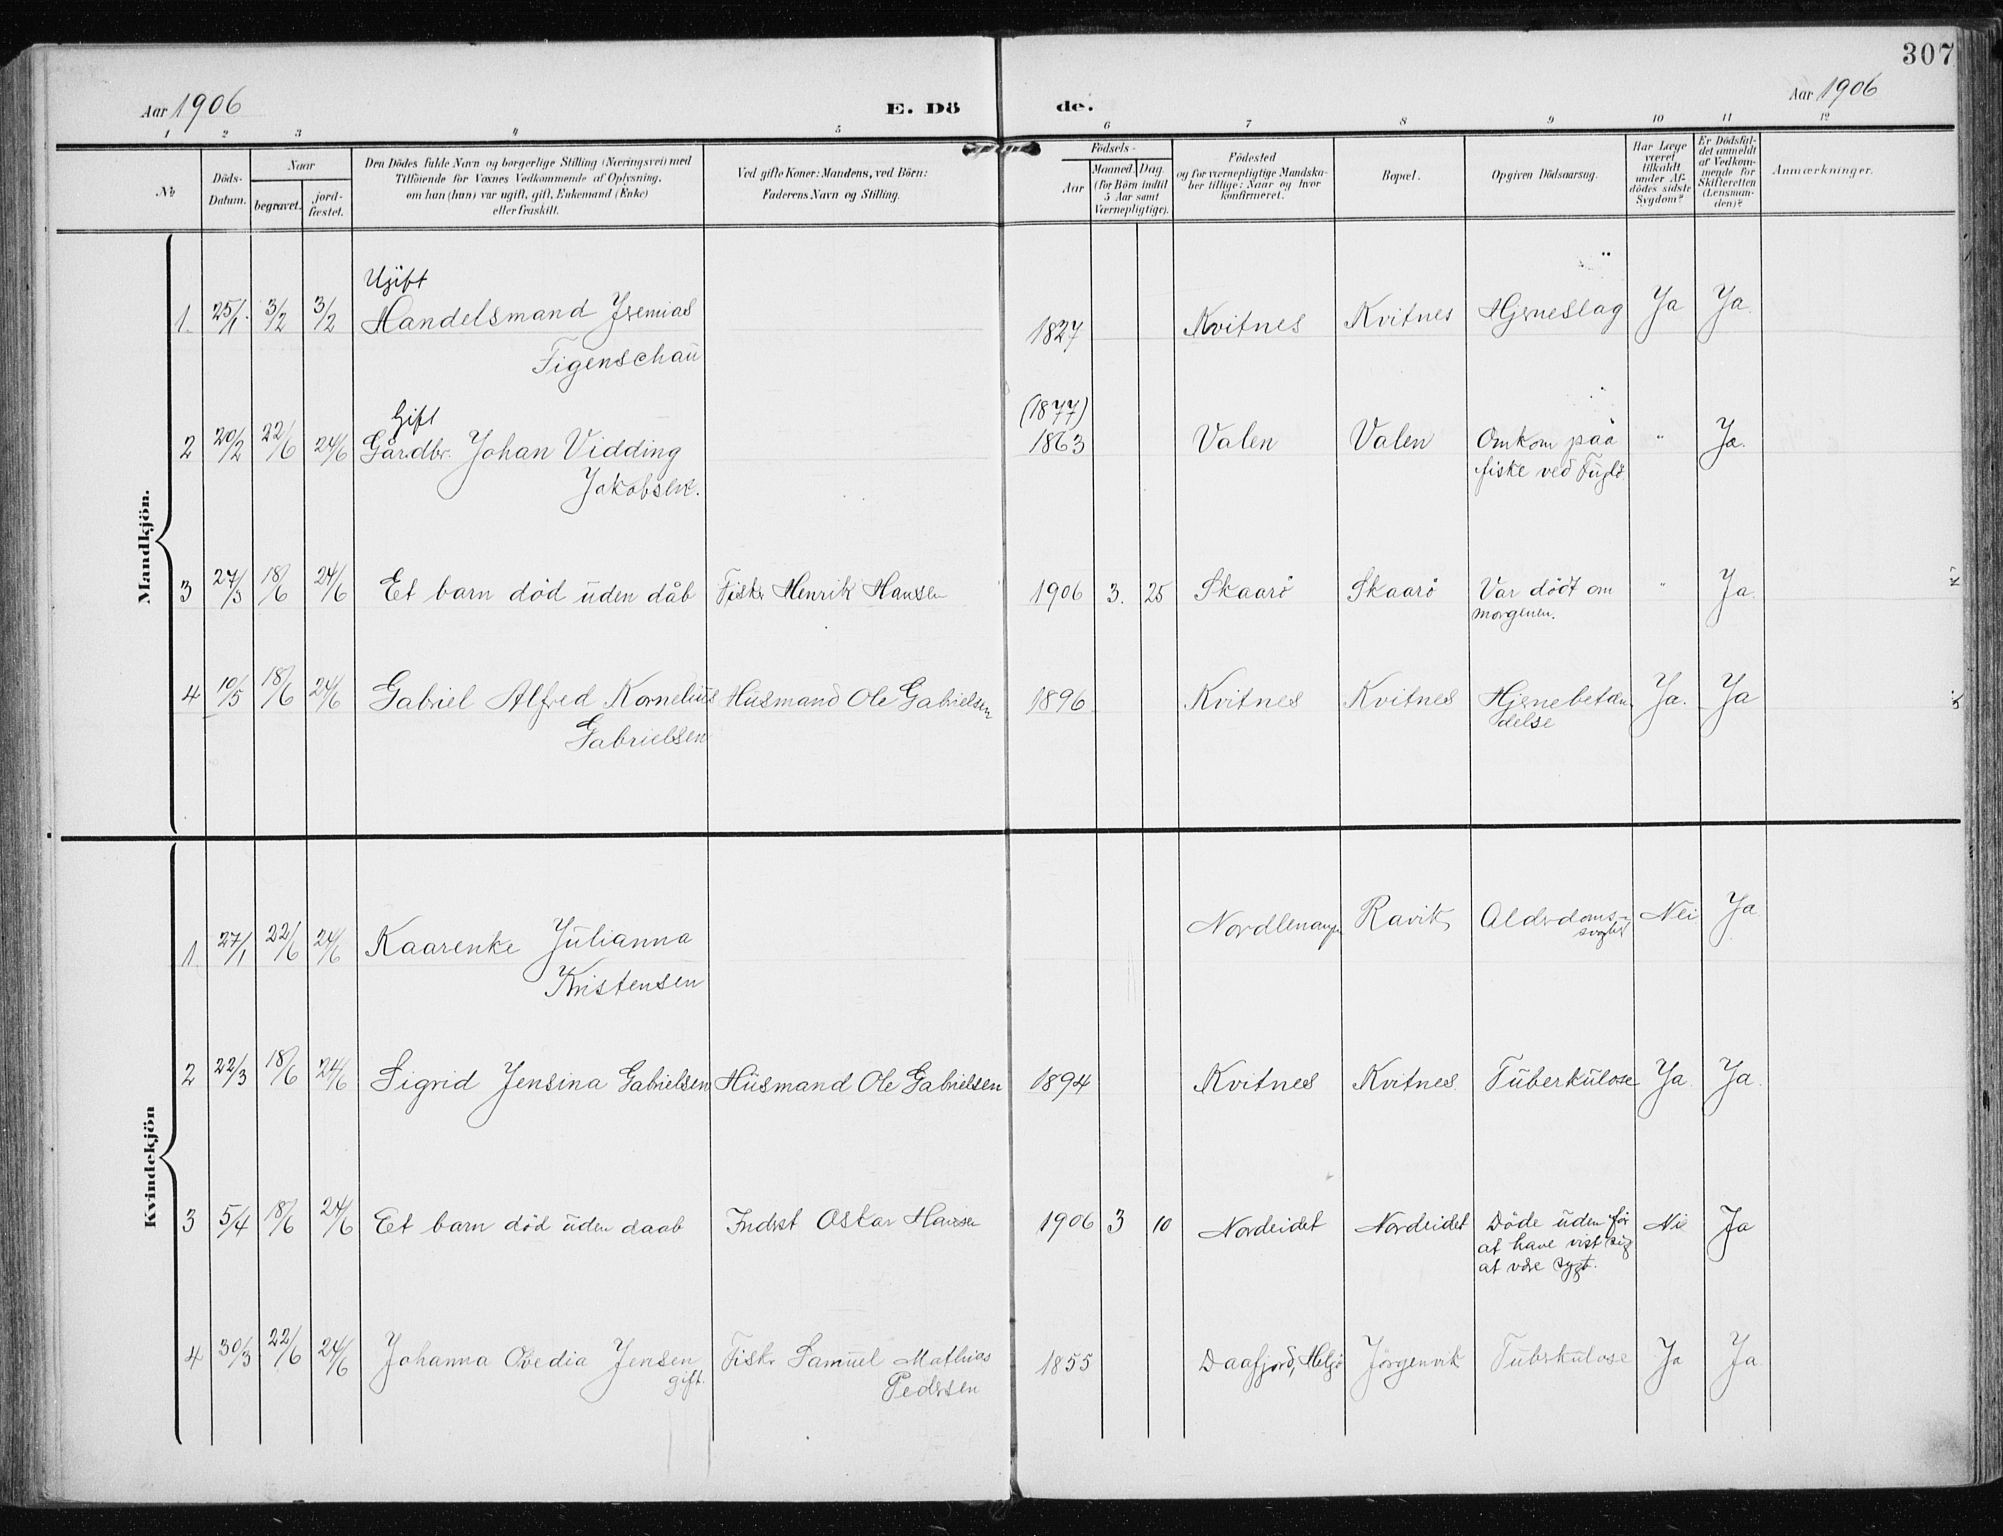 307
Aar 1906
E. Dö de.
Aar 1906
1 2 3 4 5 6 7 8 9 10 11 12
№
Döds-
Datum.
Naar
begravet.
jord-
fæstet.
Den Dödes fulde Navn og borgerlige Stilling (Næringsvei) med
Tilföiende for Voxnes Vedkommende af Oplysning,
om hun (han) var ugift, gift, Enkemand (Enke)
eller fraskilt.
Ved gifte Koner: Mandens, ved Börn:
Faderens Navn og Stilling.
Födsels-
Aar
Maaned. Dag.
(for Börn indtil
5 Aar samt
Værnepligtige).
Födested
og for værnepligtige Mandska-
ber tillige: Naar og hvor
konfirmeret.
Bopæl.
Opgiven Dödsaarsag.
Har Læge
været
tilkaldt
under Af-
dödes sidste
Sygdom?
Er Dödsfal-
det anmeldt
af Vedkom-
mende for
Skifteretten
(Lensman-
den)?
Anmærkninger.
Mandkjön.
Ugift
1. 25/1. 3/2 3/2 Handelsmand Jeremias 1827 Kvitnes Kvitnes Hjerneslag Ja Ja.
Figenschau
Gift (1877)
2 20/2 22/6 24/6 Gårdbr. Johan Vidding 1863 Valen Valen Omkom paa " Ja.
Jakobsen. fiske ved Fuglö.
3 27/3 18/6 24/6 Et barn död uden dåb Fisker Henrik Hansen 1906 3. 25 Skaarö Skaarö Var dödt om " Ja.
morgenen.
4 10/5 18/6 24/6 Gabriel Alfred Kornelius Husmand Ole Gabrielsen 1896 Kvitnes Kvitnes Hjernebetæn Ja. Ja
Gabrielsen delse
Kvindekjön
1. 27/1 22/6 24/6 Kaarenke Julianna Ravik Alderdoms- Nei Ja
Kristensen
2 22/3 18/6 24/6 Sigrid Jensina Gabrielsen Husmand Ole Gabrielsen 1894 Kvitnes Kvitnes Tuberkulose Ja. Ja.
3 5/4 18/6 24/6 Et barn död uden daab Inderst Oskar Hansen 1906 3 10 Nordeidet Nordeidet Döde uden för Nei Ja
at have vist sig
at være sygt.
4 30/3 22/6 24/6 Johanna Ovedia Jensen Fisker Samuel Mathias 1855 Daafjord, Helgö Jörgenvik Tuberkulose Ja Ja.
gift. Pedersen